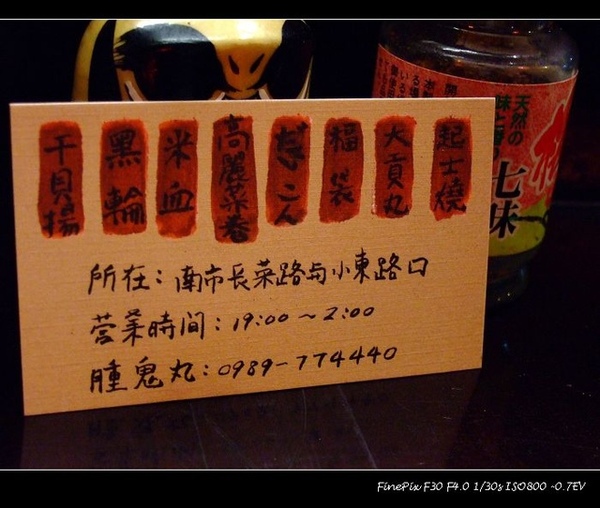 起士燒
大貢丸
福袋
高麗菜卷
米血
黑輪
干貝揚
所在：南市長菜路与小東路口
營業時間：19:00～2:00
腫鬼丸：0989-774440
天然の
七味
FinePix F30 F4.0 1/30s ISO800 -0.7EV